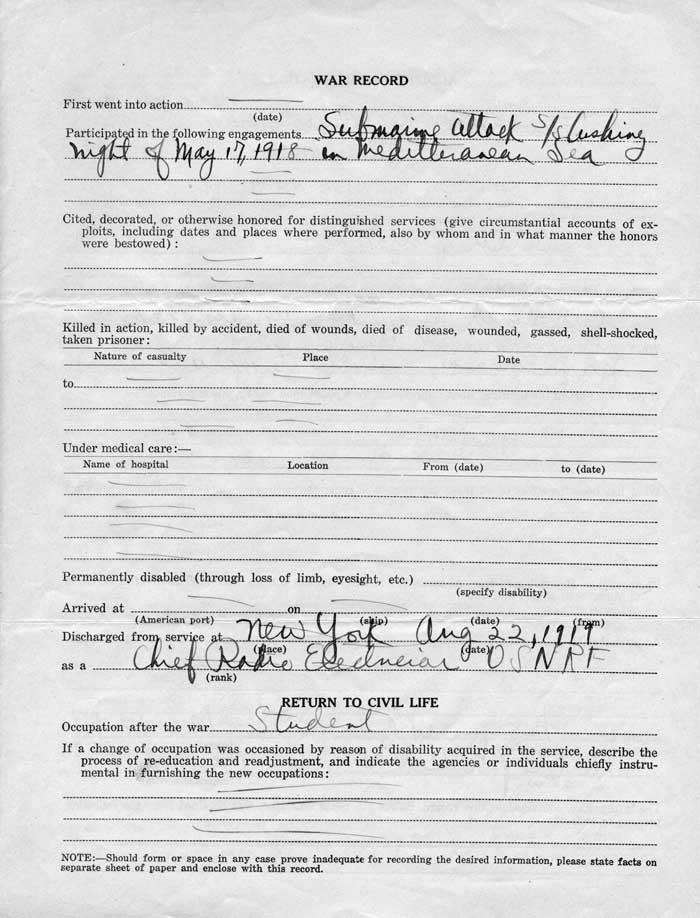 WAR RECORD
First went into action
(date)
Participated in the following engagements Submarine attack S/S Cushing
night of May 17, 1918 in Mediterranean Sea
Cited, decorated, or otherwise honored for distinguished services (give circumstantial accounts of ex-
ploits, including dates and places where performed, also by whom and in what manner the honors
were bestowed) :
Killed in action, killed by accident, died of wounds, died of disease, wounded, gassed, shell-shocked,
taken prisoner:
Nature of casualty Place Date
to
Under medical care:—
Name of hospital Location From (date) to (date)
Permanently disabled (through loss of limb, eyesight, etc.)
(specify disability)
Arrived at on
(American port) (ship) (date) (from)
Discharged from service at New York Aug 22, 1919
(place) (date)
as a Chief Radio USNRF
(rank)
RETURN TO CIVIL LIFE
Occupation after the war Student
If a change of occupation was occasioned by reason of disability acquired in the service, describe the
process of re-education and readjustment, and indicate the agencies or individuals chiefly instru-
mental in furnishing the new occupations:
NOTE:—Should form or space in any case prove inadequate for recording the desired information, please state facts on
separate sheet of paper and enclose with this record.